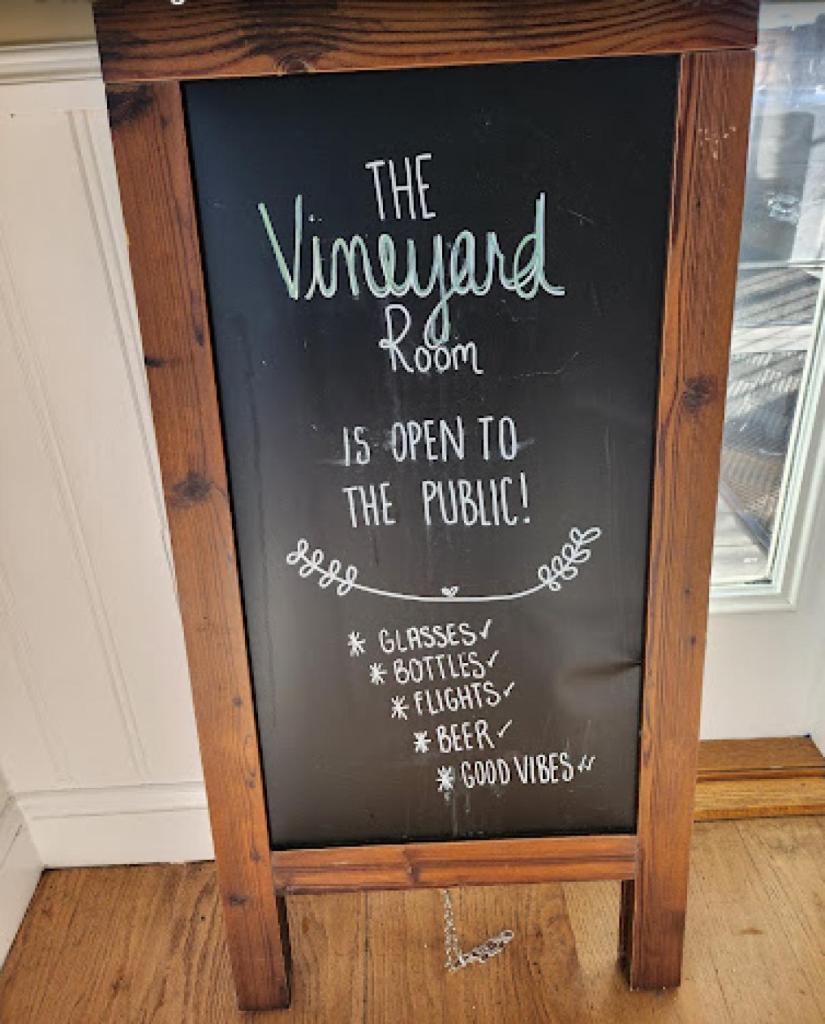 THE
Vineyard
Room
IS OPEN TO
THE PUBLIC!
* GLASSES✓
* BOTTLES✓
* FLIGHTS✓
* BEER✓
* GOOD VIBES✓✓